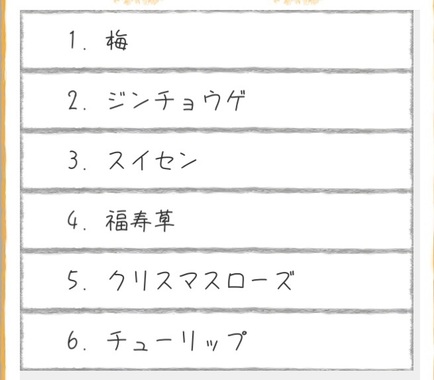 1. 梅
2. ジンチョウゲ
3. スイセン
4. 福寿草
5. クリスマスローズ
6. チューリップ